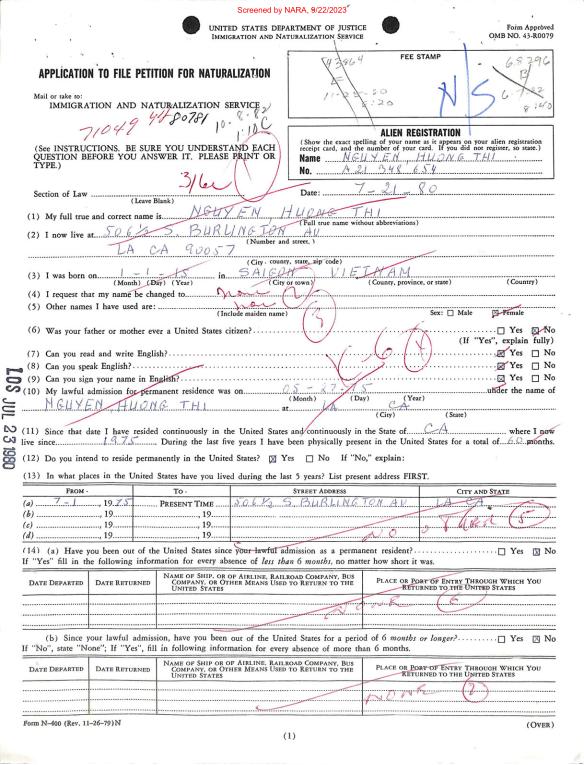 Screened by NARA, 9/22/2023
UNITED STATES DEPARTMENT OF JUSTICE
IMMIGRATION AND NATURALIZATION SERVICE
Form Approved
OMB NO. 43-R0079
FEE STAMP
43964
E
11-25-80
5:20
N/S
68796
B
8:40
APPLICATION TO FILE PETITION FOR NATURALIZATION
Mail or take to:
IMMIGRATION AND NATURALIZATION SERVICE
71049 80781
10-8-82
1:10 C
(See INSTRUCTIONS. BE SURE YOU UNDERSTAND EACH
QUESTION BEFORE YOU ANSWER IT. PLEASE PRINT OR
TYPE.)
ALIEN REGISTRATION
(Show the exact spelling of your name as it appears on your alien registration
receipt card, and the number of your card. If you did not register, so state.)
Name NGUYEN, HUONG THI
No. A 21 348 654
316a
Section of Law
(Leave Blank)
Date: 7-21-80
(1) My full true and correct name is NGUYEN, HUONG THI
(Full true name without abbreviations)
(2) I now live at 506½ S. BURLINGTON AV
(Number and street,)
LA CA 90057
(City, county, state, zip code)
(3) I was born on 1-1-15 in SAIGON VIETNAM
(Month) (Day) (Year) (City or town) (County, province, or state) (Country)
(4) I request that my name be changed to none 2
(5) Other names I have used are: none
(Include maiden name) Sex: ☐ Male ☒ Female
3
(6) Was your father or mother ever a United States citizen? ☐ Yes ☒ No
(If "Yes", explain fully)
(7) Can you read and write English? ☒ Yes ☐ No
(8) Can you speak English? ☒ Yes ☐ No
(9) Can you sign your name in English? ☒ Yes ☐ No
(10) My lawful admission for permanent residence was on 05-27-75 under the name of
(Month) (Day) (Year)
NGUYEN, HUONG THI at LA CA
(City) (State)
LOS JUL 23 1980
(11) Since that date I have resided continuously in the United States and continuously in the State of CA where I now
live since 1975. During the last five years I have been physically present in the United States for a total of 60 months.
(12) Do you intend to reside permanently in the United States? ☒ Yes ☐ No If "No," explain:
(13) In what places in the United States have you lived during the last 5 years? List present address FIRST.
FROM - TO - STREET ADDRESS CITY AND STATE
(a) 7-1, 1975 PRESENT TIME 506½ S. BURLINGTON AV LA CA
(b) , 19 , 19
(c) , 19 , 19
(d) , 19 , 19
5
(14) (a) Have you been out of the United States since your lawful admission as a permanent resident? ☐ Yes ☒ No
If "Yes" fill in the following information for every absence of less than 6 months, no matter how short it was.
DATE DEPARTED DATE RETURNED NAME OF SHIP, OR OF AIRLINE, RAILROAD COMPANY, BUS COMPANY, OR OTHER MEANS USED TO RETURN TO THE UNITED STATES PLACE OR PORT OF ENTRY THROUGH WHICH YOU RETURNED TO THE UNITED STATES
NONE 6
(b) Since your lawful admission, have you been out of the United States for a period of 6 months or longer? ☐ Yes ☒ No
If "No", state "None"; If "Yes", fill in following information for every absence of more than 6 months.
DATE DEPARTED DATE RETURNED NAME OF SHIP, OR OF AIRLINE, RAILROAD COMPANY, BUS COMPANY, OR OTHER MEANS USED TO RETURN TO THE UNITED STATES PLACE OR PORT OF ENTRY THROUGH WHICH YOU RETURNED TO THE UNITED STATES
NONE
Form N-400 (Rev. 11-26-79)N
(OVER)
(1)